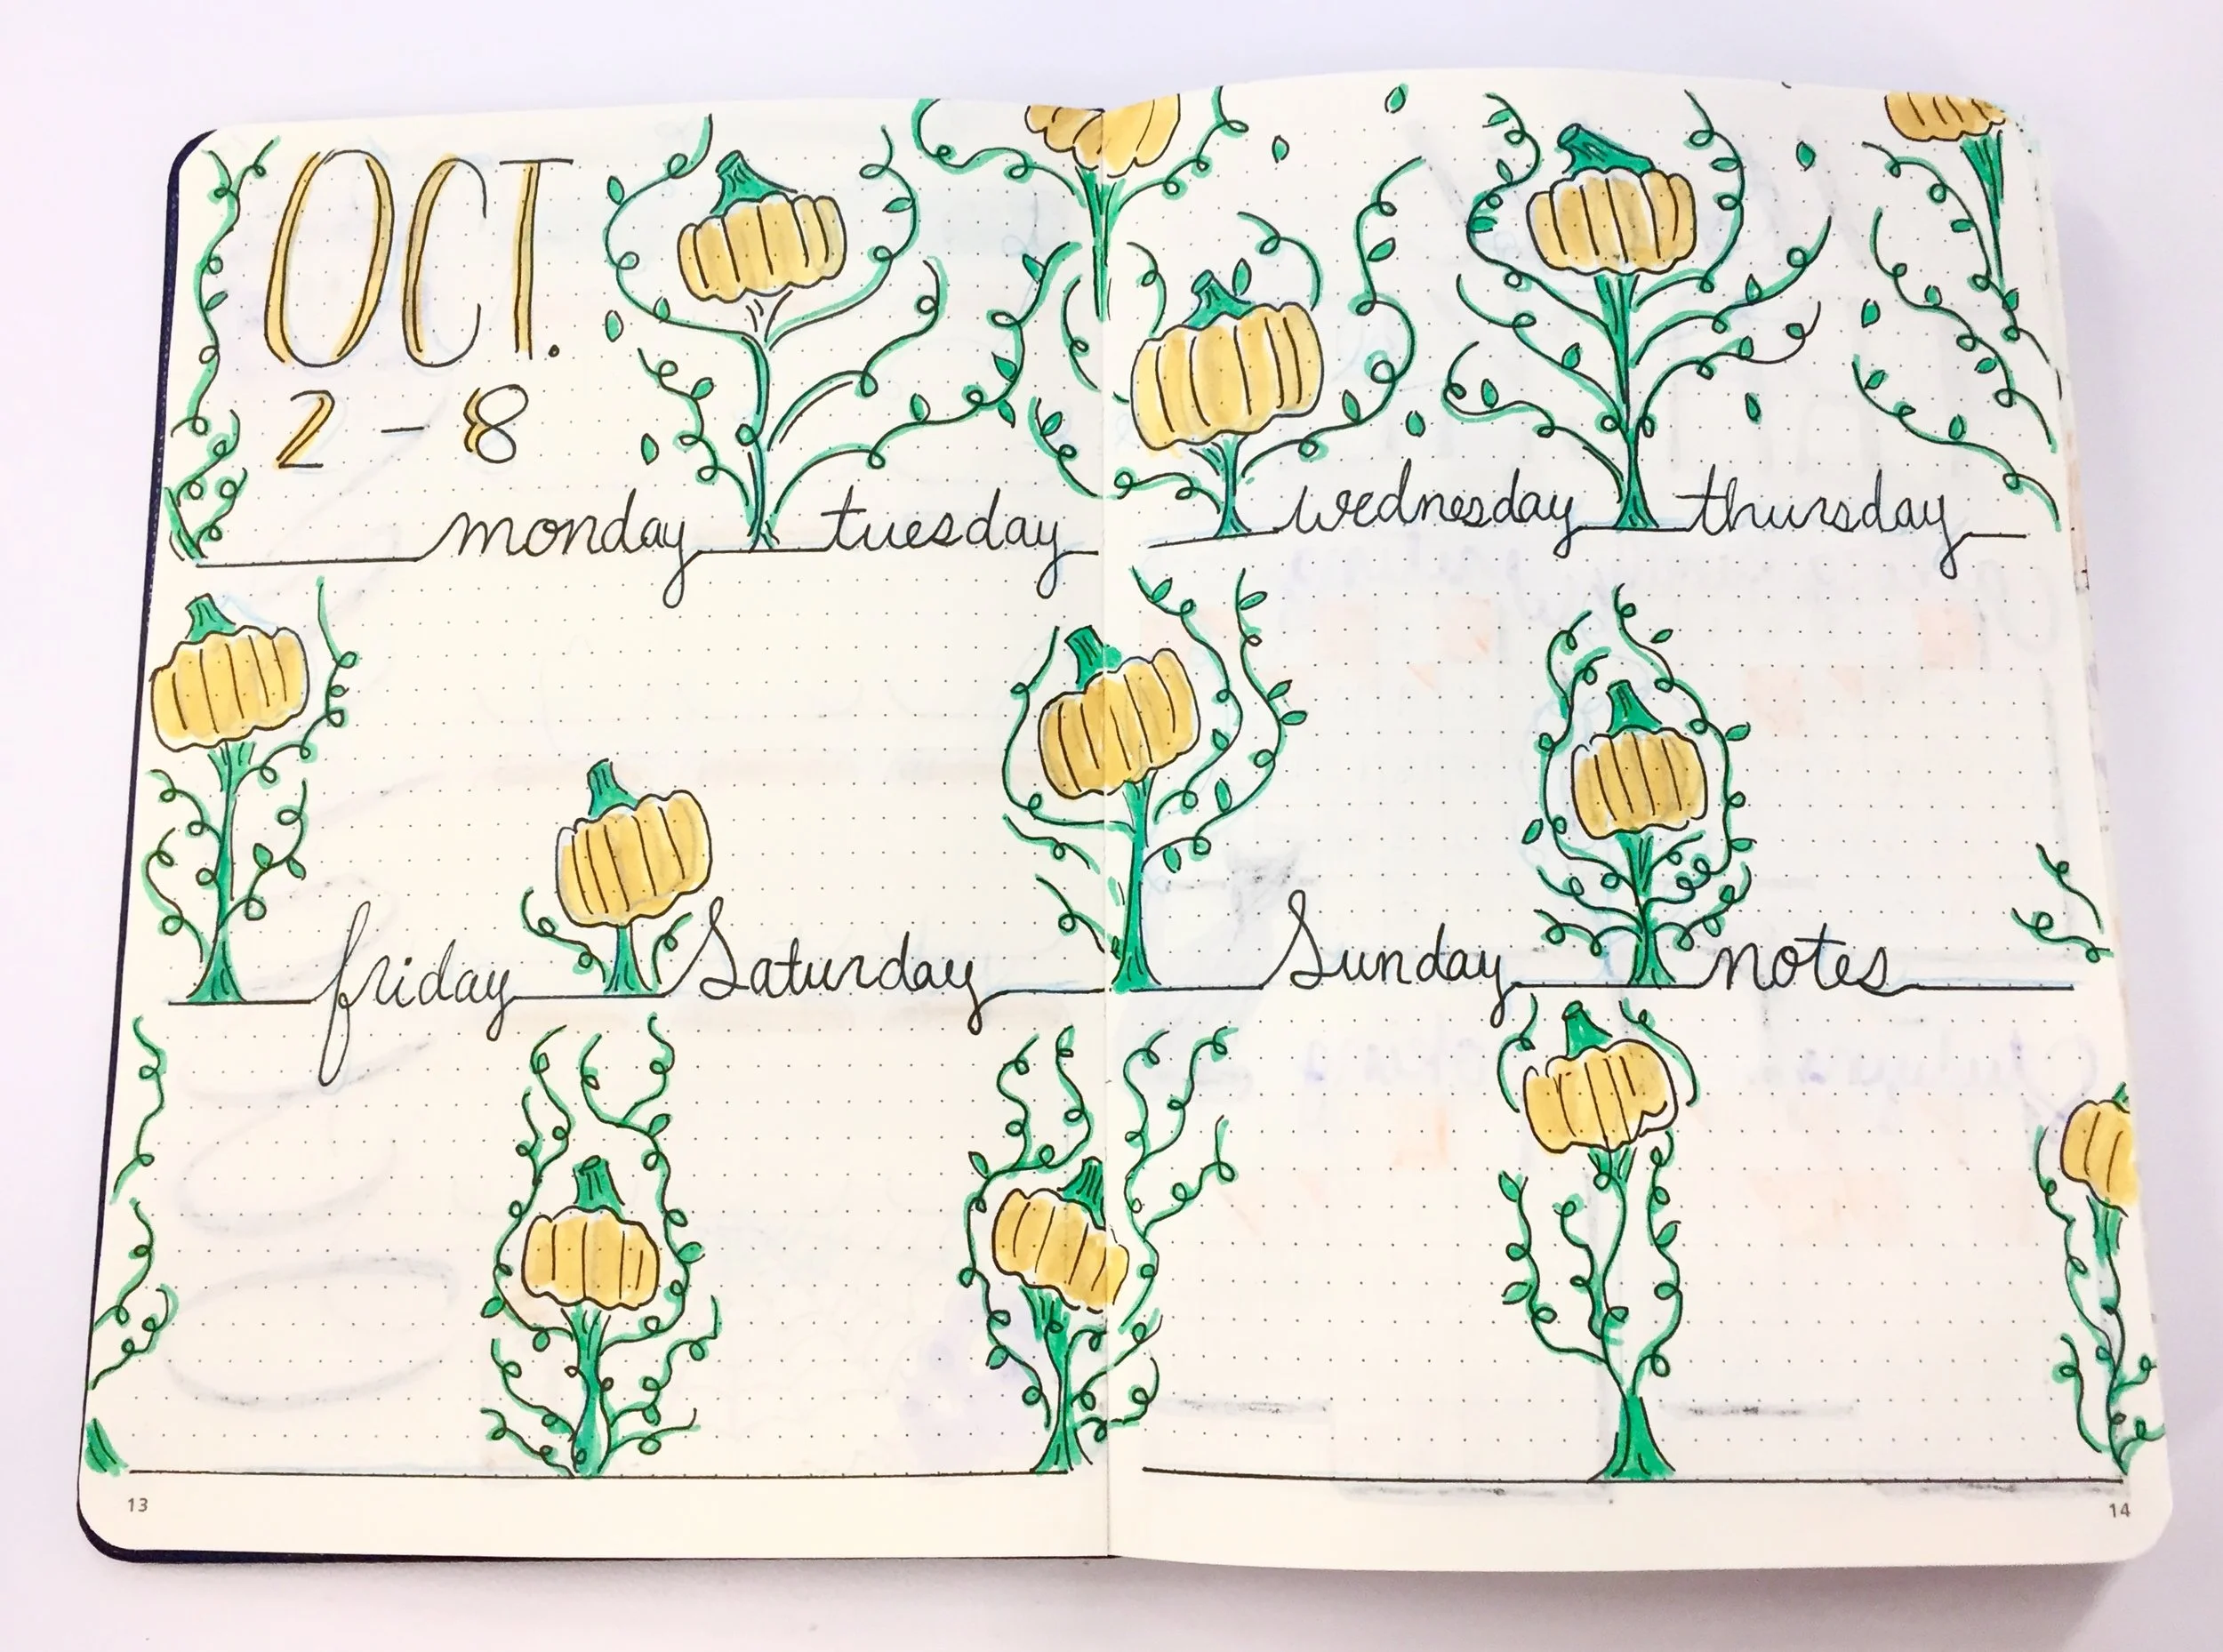 OCT.
2 - 8
monday tuesday wednesday thursday
friday Saturday Sunday notes
13 14